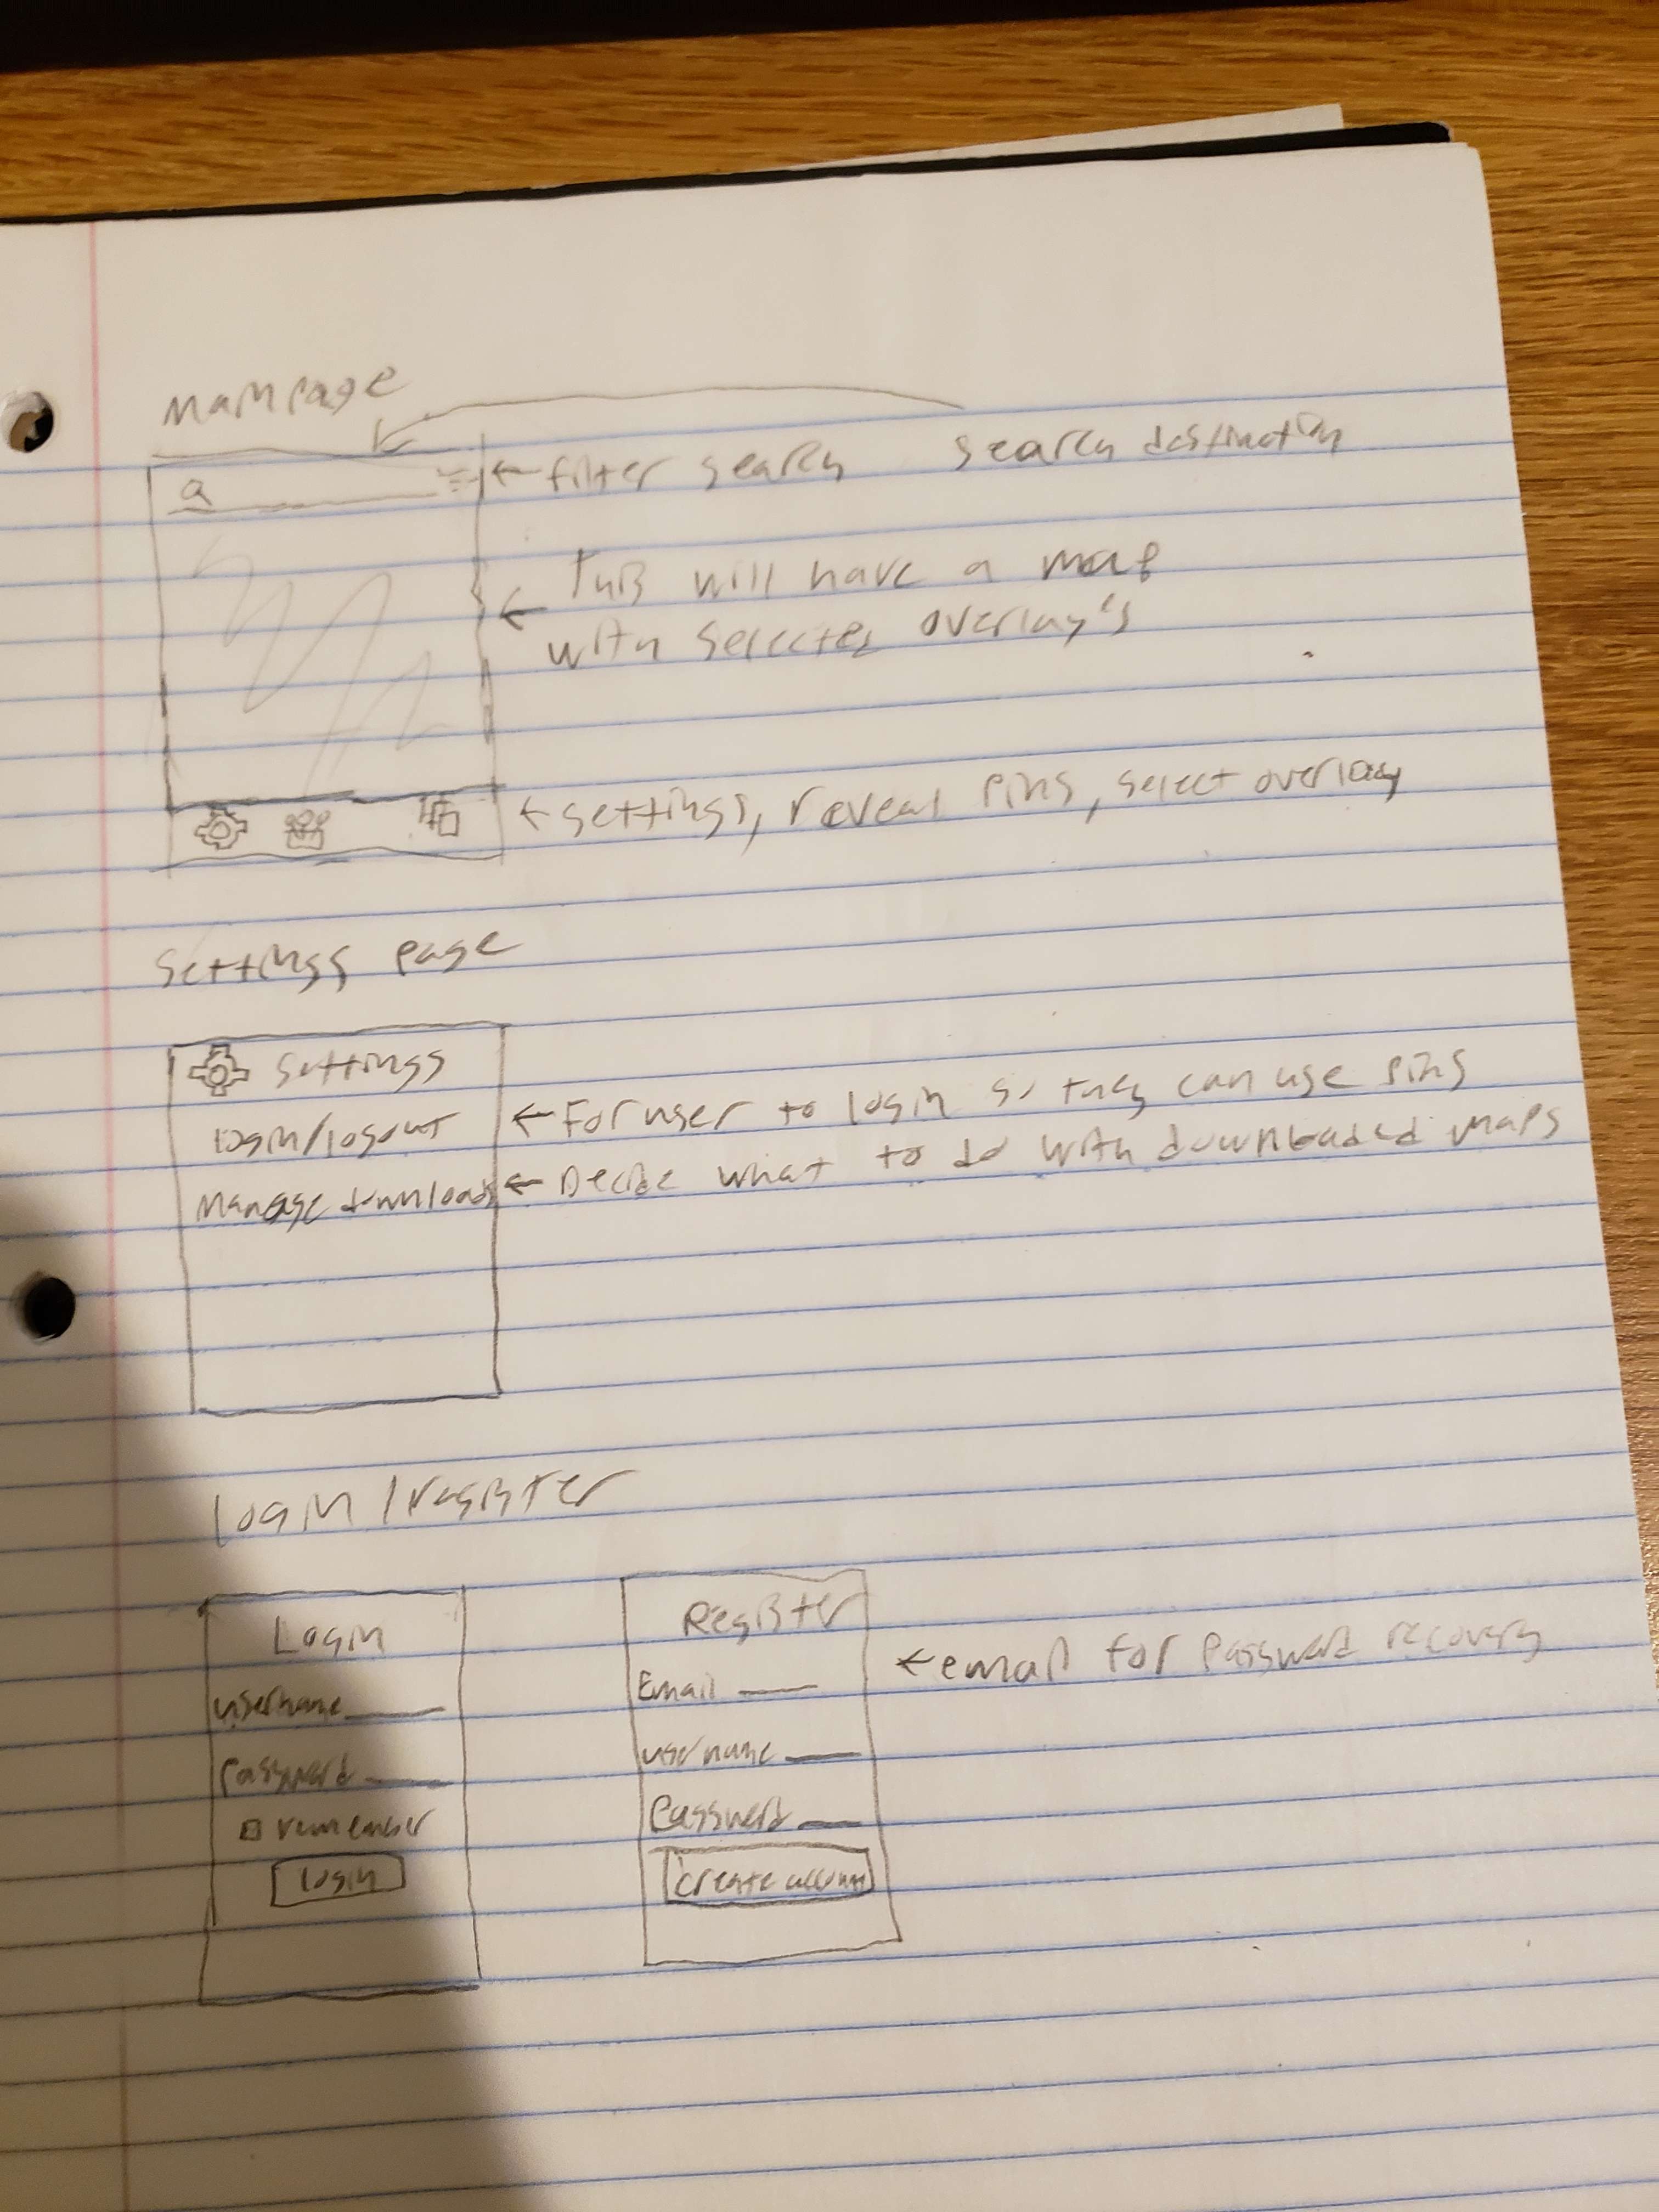 Main page
filter search
search destination
This will have a map
with selected overlay's
settings, reveal pins, select overlay
settings page
settings
login/logout
For user to login so they can use pins
Manage downloads
Decide what to do with downloaded maps
login/register
Login
username
password
remember
login
Register
Email
email for password recovery
username
password
create account